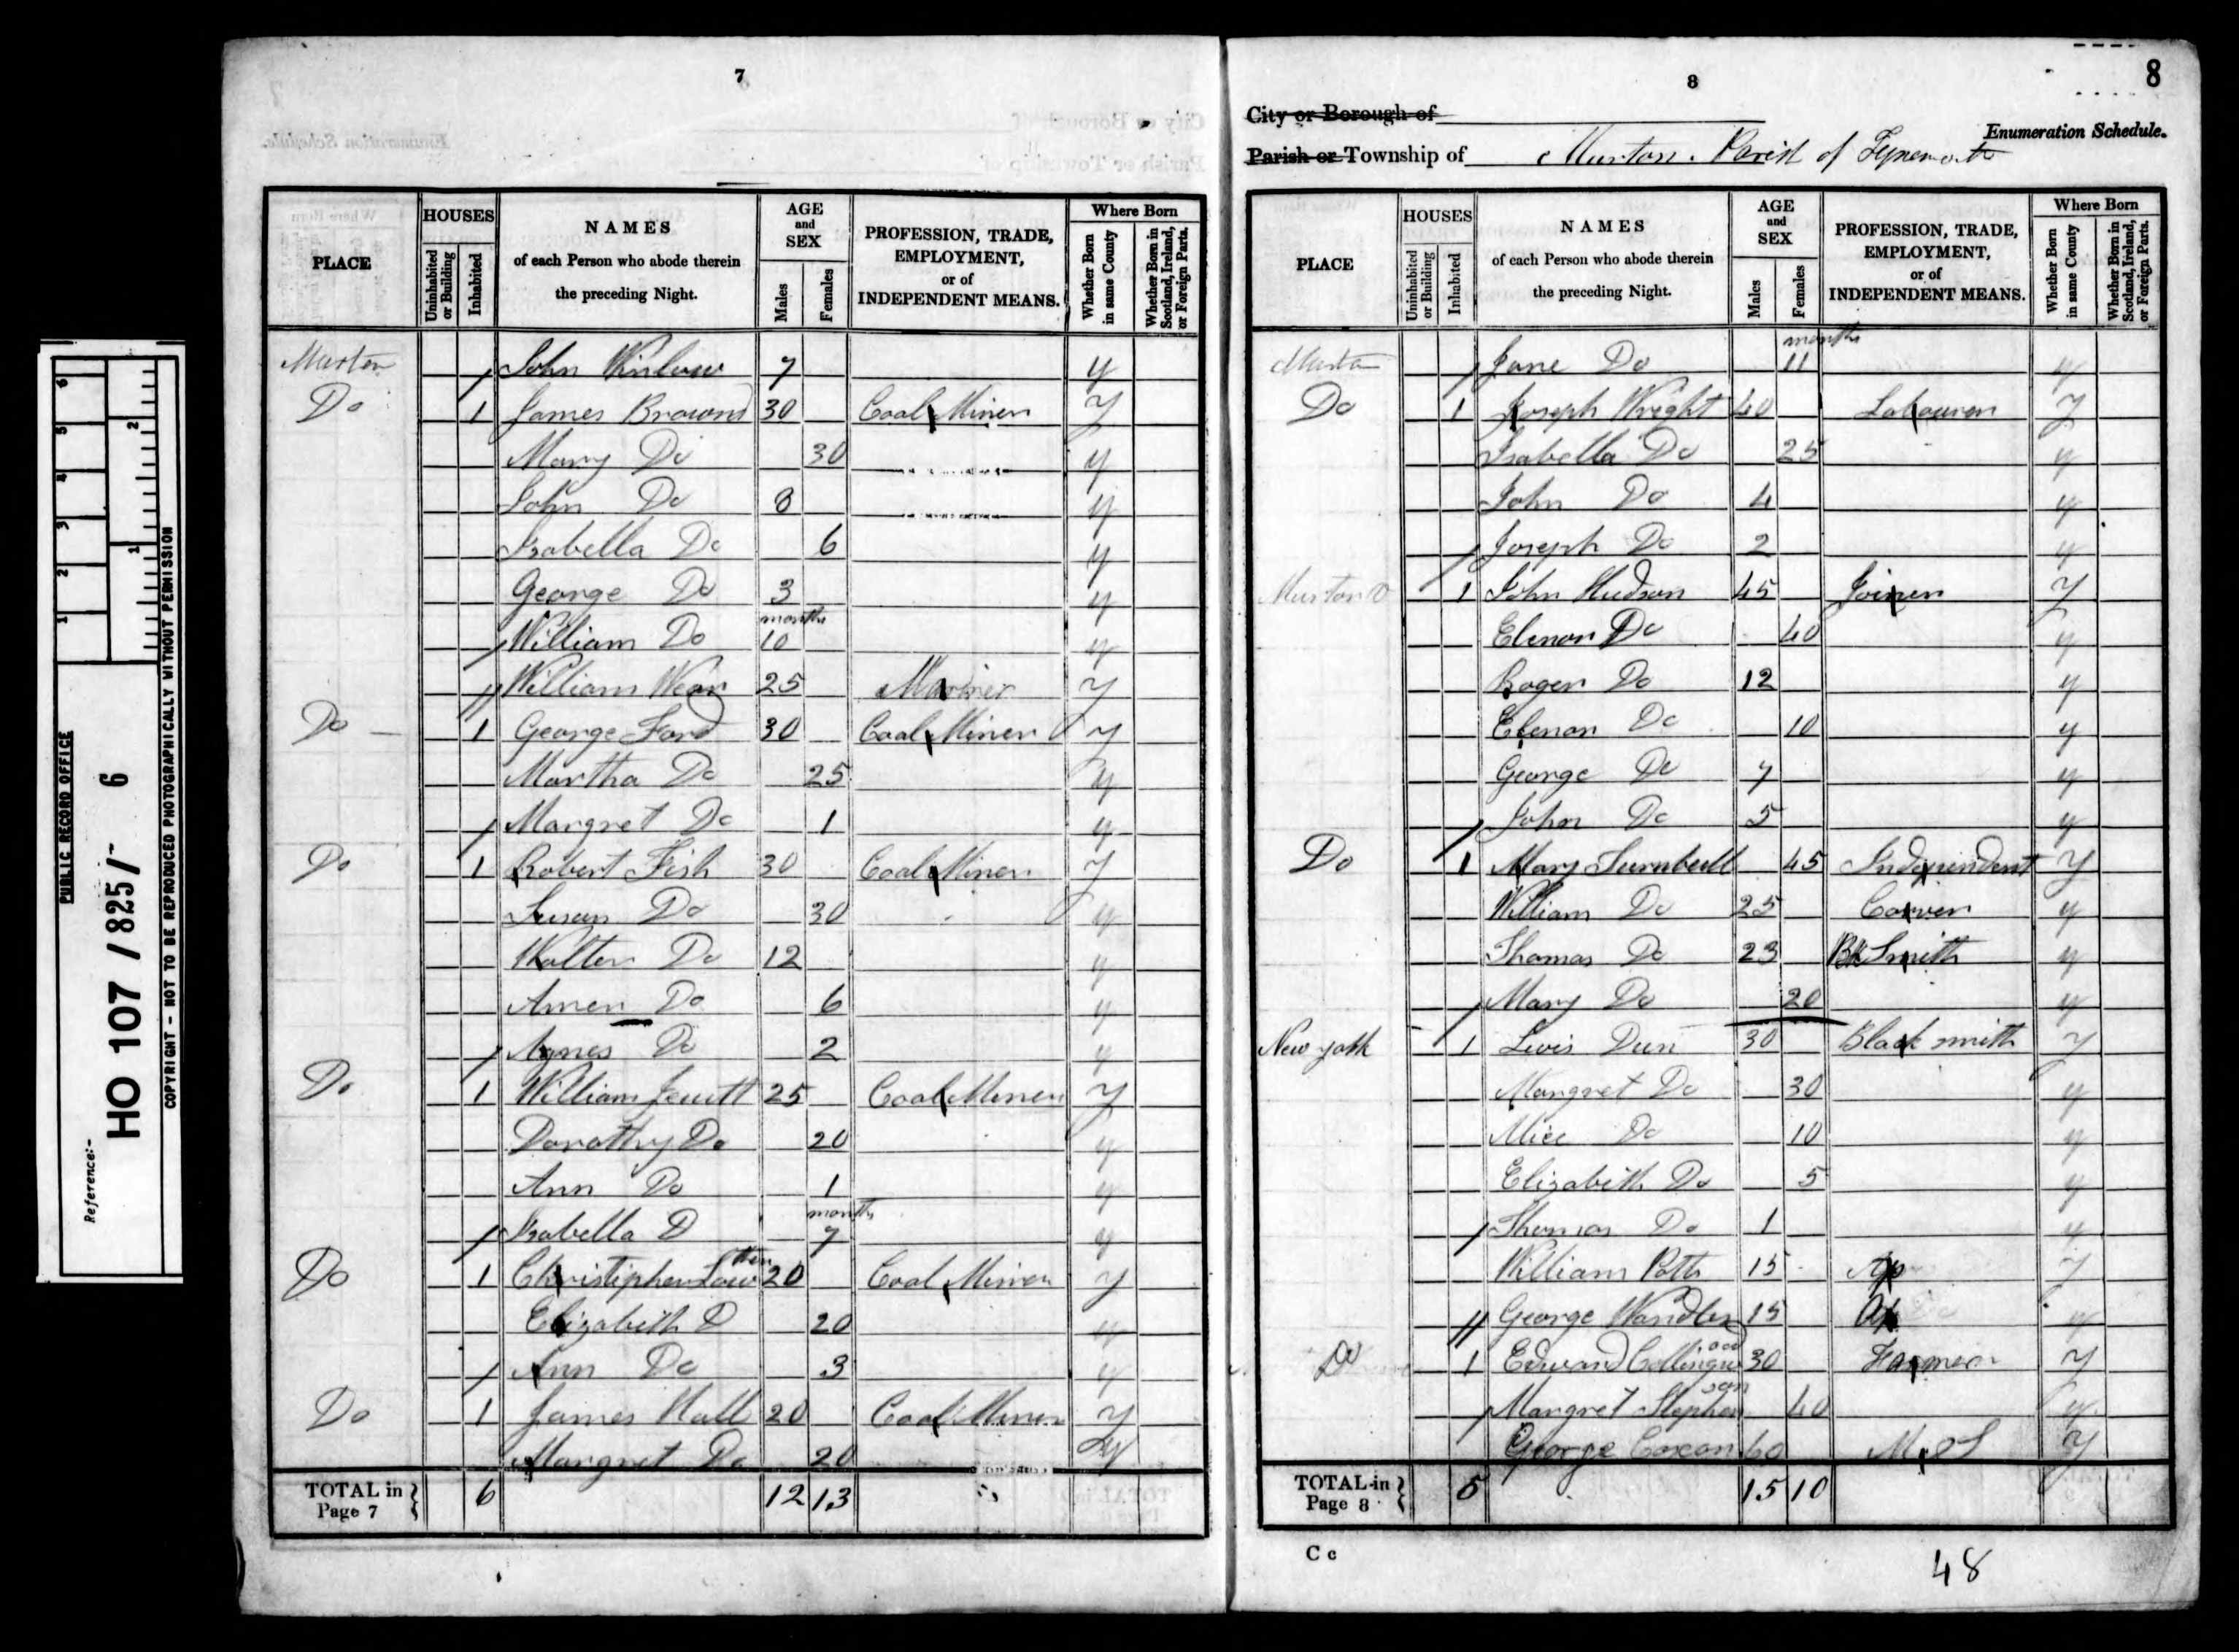 PUBLIC RECORD OFFICE
Reference:- HO 107 / 825 /- 6
COPYRIGHT - NOT TO BE REPRODUCED PHOTOGRAPHICALLY WITHOUT PERMISSION
1 2 3 4 5 6
1 2
7
PLACE HOUSES Uninhabited or Building Inhabited NAMES of each Person who abode therein the preceding Night. AGE and SEX Males Females PROFESSION, TRADE, EMPLOYMENT, or of INDEPENDENT MEANS. Where Born Whether Born in same County Whether Born in Scotland, Ireland, or Foreign Parts.
Murton John Winlow 7 y
Do 1 James Brown 30 Coal Miner y
Mary Do 30 y
John Do 8 y
Isabella Do 6 y
George Do 3 y
William Do months 10 y
William Wear 25 Mariner y
Do 1 George Ford 30 Coal Miner y
Martha Do 25 y
Margret Do 1 y
Do 1 Robert Fish 30 Coal Miner y
Susan Do 30 y
Walter Do 12 y
Amen Do 6 y
Agnes Do 2 y
Do 1 William Jewitt 25 Coal Miner y
Dorothy Do 20 y
Ann Do 1 y
Isabella D months 7 y
Do 1 Christipher Lowther 20 Coal Miner y
Elizabeth D 20 y
Ann Do 3 y
Do 1 James Hall 20 Coal Miner y
Margret Do 20 y
TOTAL in Page 7 6 12 13
8
8
City or Borough of
Enumeration Schedule.
Parish or Township of Murton. Parish of Tynemouth
PLACE HOUSES Uninhabited or Building Inhabited NAMES of each Person who abode therein the preceding Night. AGE and SEX Males Females PROFESSION, TRADE, EMPLOYMENT, or of INDEPENDENT MEANS. Where Born Whether Born in same County Whether Born in Scotland, Ireland, or Foreign Parts.
Murton Jane Do months 11 y
Do 1 Joseph Wright 40 Labourer y
Isabella Do 25 y
John Do 4 y
Joseph Do 2 y
Murton 1 John Hudson 45 Joiner y
Elenor Do 40 y
Roger Do 12 y
Elenor Do 10 y
George Do 7 y
John Do 5 y
Do 1 Mary Turnbull 45 Independent y
William Do 25 Carver y
Thomas Do 23 Bk Smith y
Mary Do 20 y
New york 1 Lewis Dun 30 Black smith y
Margret Do 30 y
Alice Do 10 y
Elizabeth Do 5 y
Thomas Do 1 y
William Potts 15 Ap y
George Wandless 15 Ap y
Do 1 Edward Collingwood 30 Farmer y
Margret Stephenson 40 y
George Coxon 60 M. S y
TOTAL in Page 8 5 15 10
C c
48